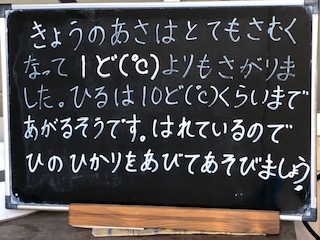 きょうのあさはとてもさむく
なって１ど(℃)よりもさがりま
した。ひるは10ど(℃)くらいまで
あがるそうです。はれているので
ひのひかりをあびてあそびましょう!